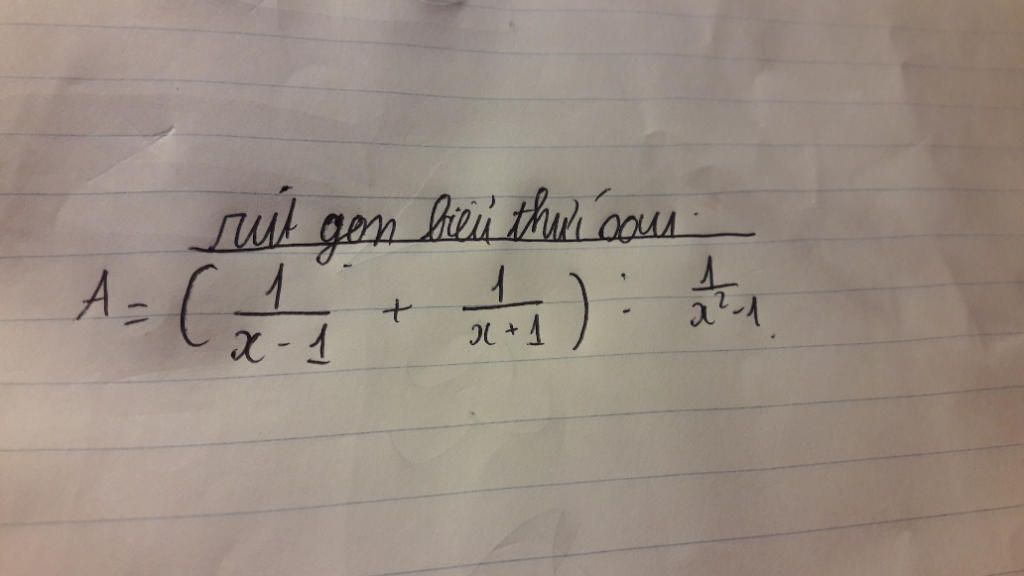 rút gọn biểu thức sau.
A = ( 1/(x - 1) + 1/(x + 1) ) : 1/(x² - 1).